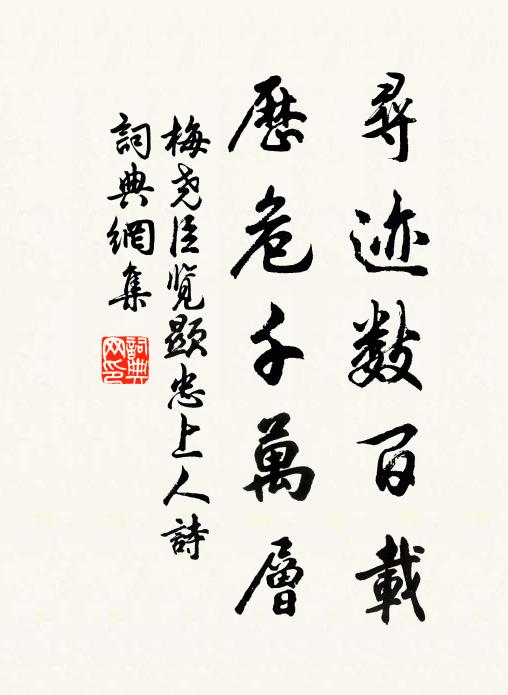 尋迹数百載
歷危千萬層
梅尧臣覽顯忠上人詩
詞典網集
詞典網印